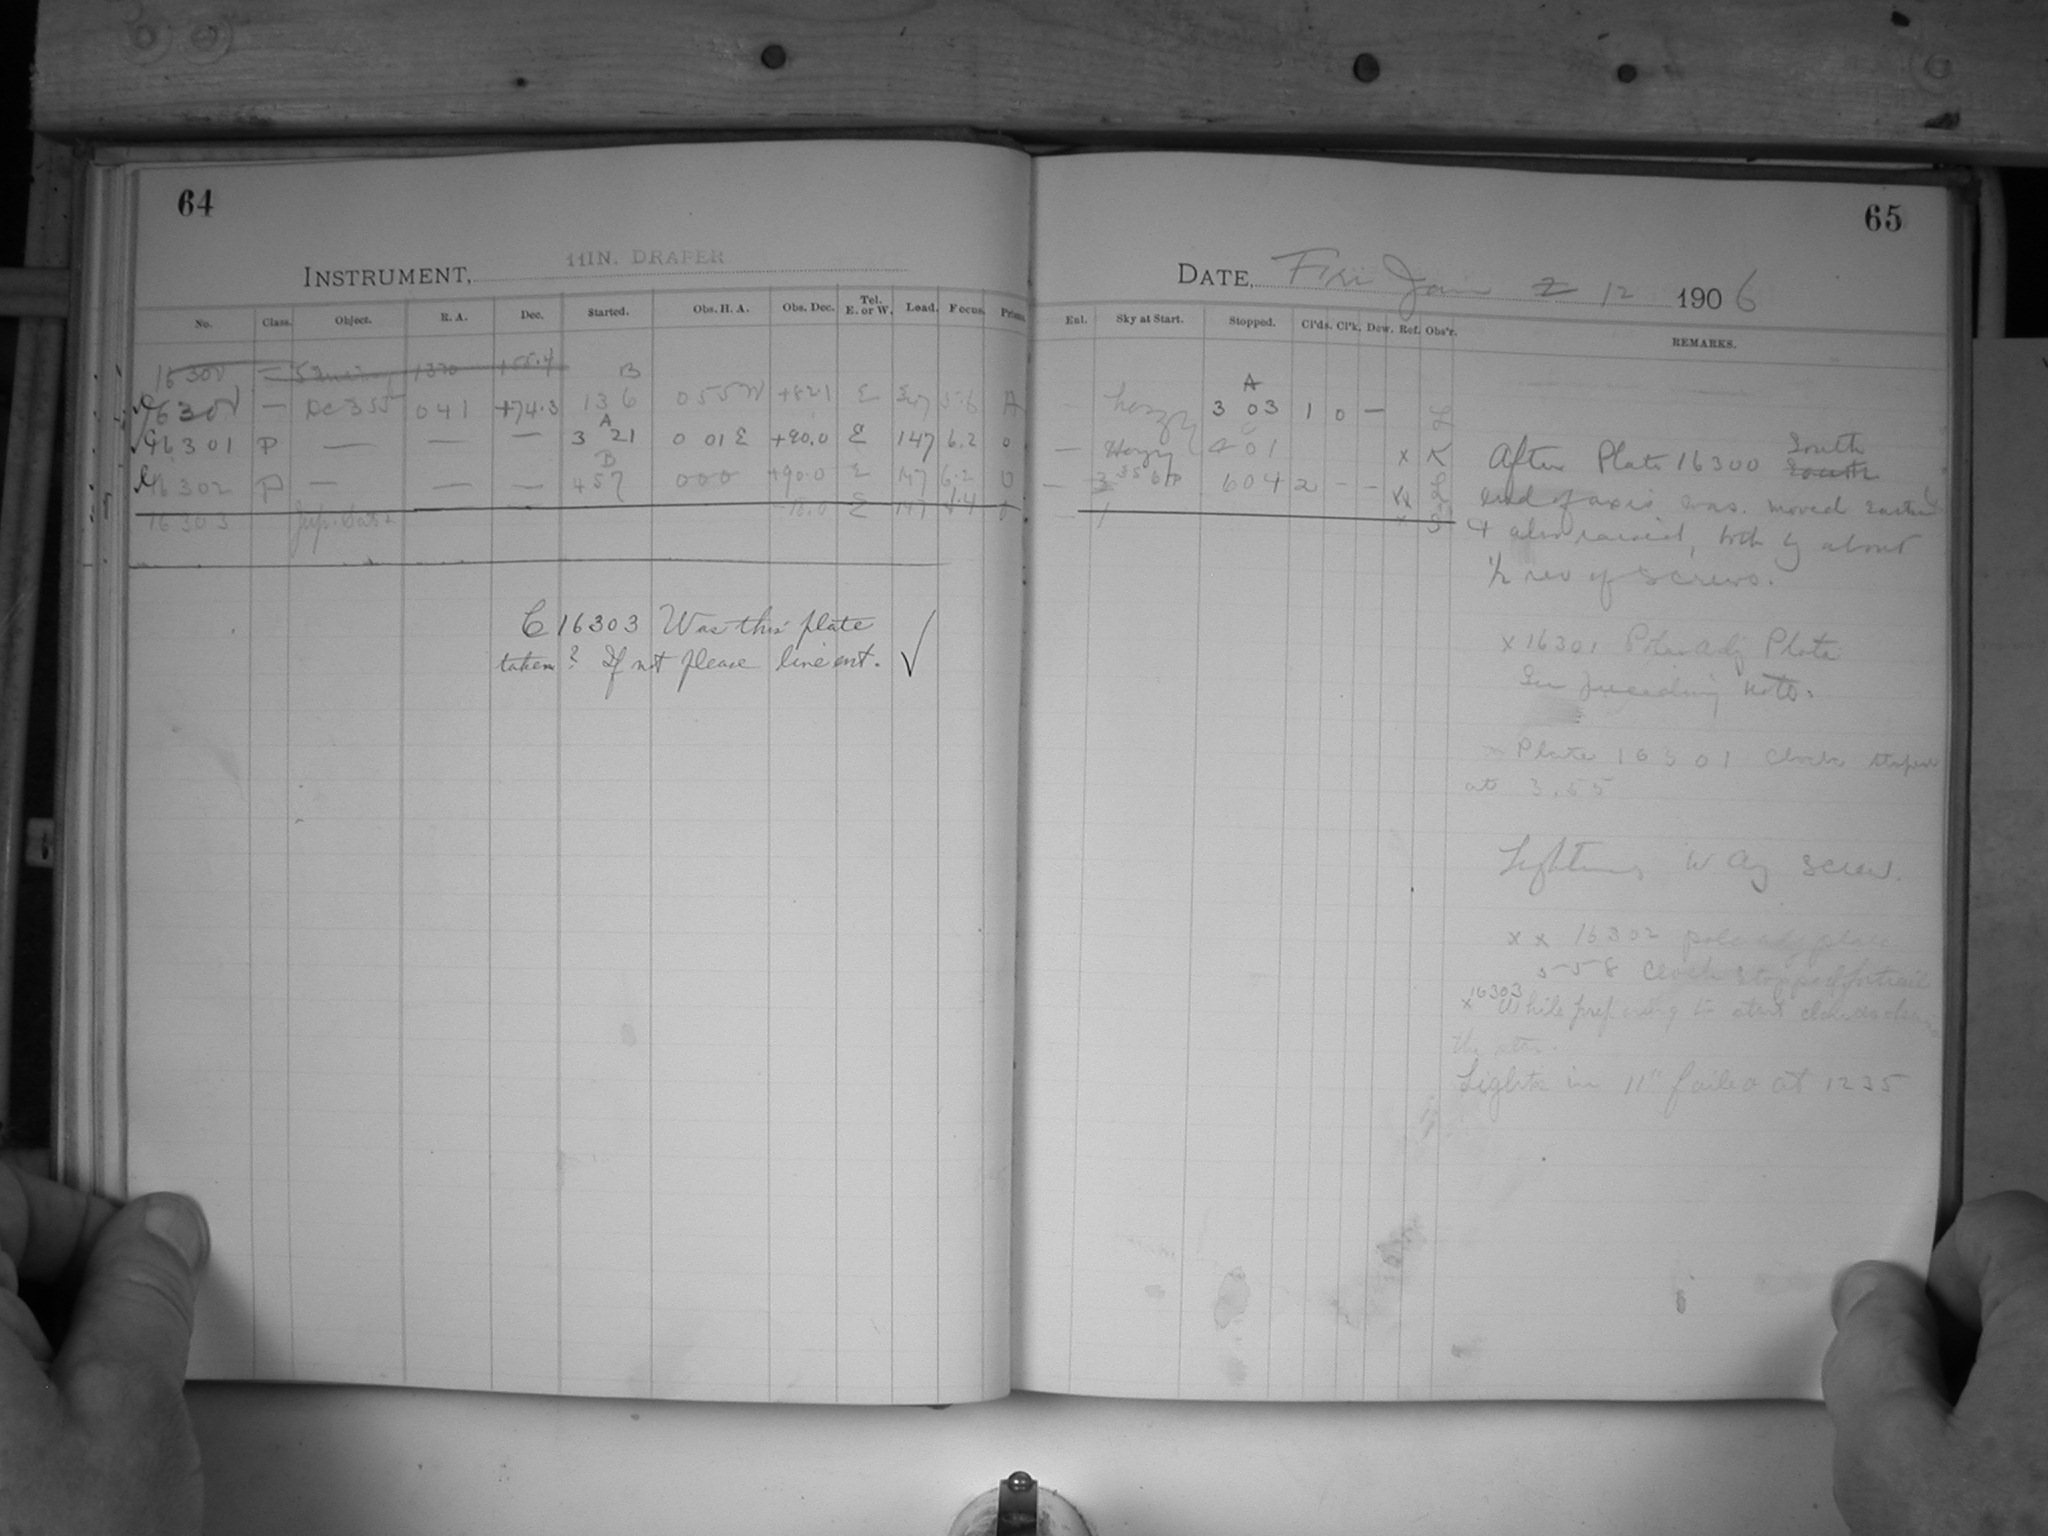 64
INSTRUMENT, 11IN. DRAPER
No. Class. Object. R. A. Dec. Started. Obs. H. A. Obs. Dec. Tel. E. or W. Load. Focus. Prisms.
16300 — 1320 +55.4
B
16300 — DC 355 041 +74.3 136 055W +82.1 E 5.6 A
A
16301 P — — — 3 21 0 01 E +90.0 E 147 6.2 0
B
16302 P — — — 457 000 +90.0 E 147 6.2 0
16303 Jup. Sat 2 E 147
C 16303 Was this plate
taken? If not please line out. ✓
65
DATE, Fri Jan 2 12 1906
Eul. Sky at Start. Stopped. Cl'ds. Cl'k. Dew. Ref. Obs'r. REMARKS.
A
— hazy 3 03 1 0 —
— Hazy 4 01 x K
— 604 2 - - xx
1 x
After Plate 16300 South
end of axis was moved
& also raised, both by about
½ rev of screws.
x 16301 Polar Adj Plate
See preceding note.
x Plate 16301 Clock stopped
at 3.55
W Az screw.
x x 16302 pole adj plate
5 58 Clock stopped for trail
x 16303 While preparing to start clouds
the star.
Lights in 11" failed at 1235